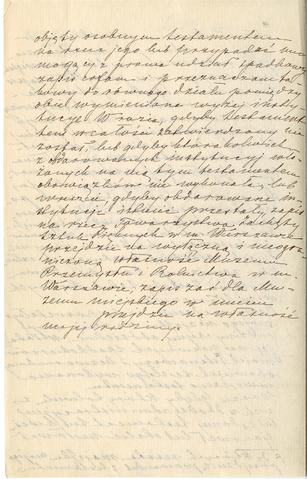 objęty osobnym testamentem
na rzecz jego lub przypadać mu
mogący z prawa udział spadkowy
zapis cofam i przeznaczam ta-
kowy do równego działu pomiędzy
obie wymienione wyżej insty-
tucje. W razie, gdyby testament
ten w całości zatwierdzony nie
został, lub gdyby którakolwiek
z obdarowanych instytucyj wło-
żonych na nie tym testamentem
obowiązków nie wykonała, lub
wreszcie, gdyby obdarowane in-
stytucje istnieć przestały, zapis
na rzecz Towarzystwa Zachęty
Sztuk Pięknych w Warszawie
przejdzie na wyłączną i nieogra-
niczoną własność Muzeum
Przemysłu i Rolnictwa w m.
Warszawie, zapis zaś dla Mu-
zeum miejskiego w mieście
przejdzie na własność
mojej rodziny.